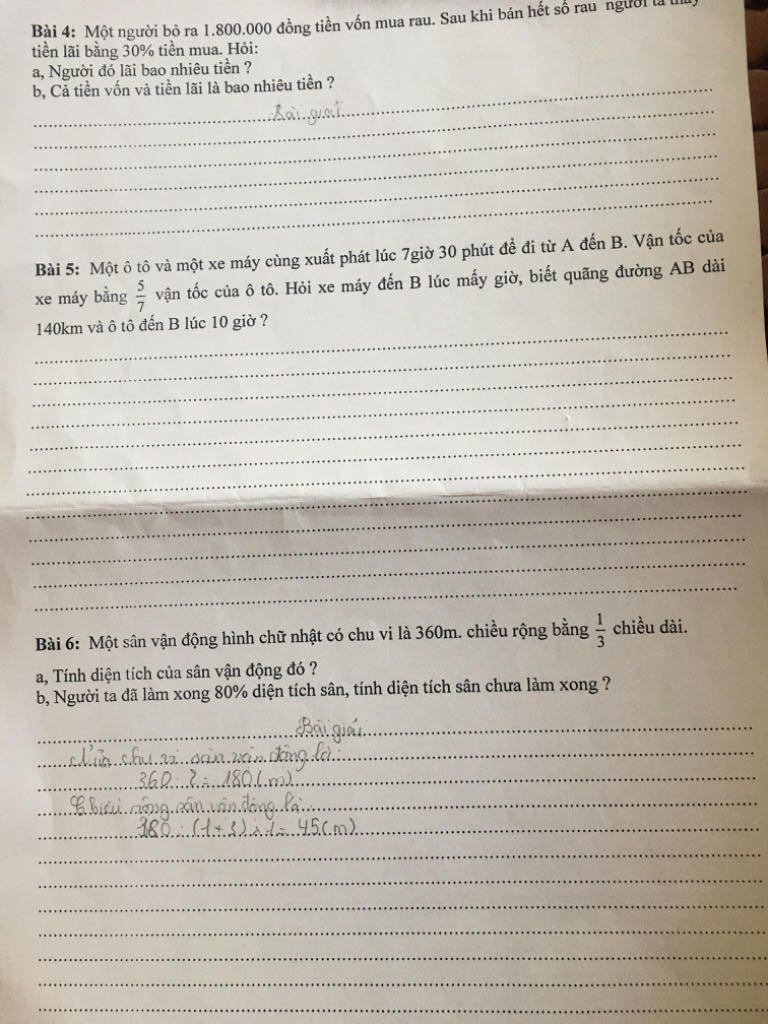 Bài 4: Một người bỏ ra 1.800.000 đồng tiền vốn mua rau. Sau khi bán hết số rau người ta thấy
tiền lãi bằng 30% tiền mua. Hỏi:
a, Người đó lãi bao nhiêu tiền ?
b, Cả tiền vốn và tiền lãi là bao nhiêu tiền ?
Bài giải
Bài 5: Một ô tô và một xe máy cùng xuất phát lúc 7giờ 30 phút để đi từ A đến B. Vận tốc của
xe máy bằng 5/7 vận tốc của ô tô. Hỏi xe máy đến B lúc mấy giờ, biết quãng đường AB dài
140km và ô tô đến B lúc 10 giờ ?
Bài 6: Một sân vận động hình chữ nhật có chu vi là 360m. chiều rộng bằng 1/3 chiều dài.
a, Tính diện tích của sân vận động đó ?
b, Người ta đã làm xong 80% diện tích sân, tính diện tích sân chưa làm xong ?
Bài giải
Nửa chu vi sân vận động là:
360 : 2 = 180(m)
Chiều rộng sân vận động là:
180 : (1+3) x 1 = 45(m)